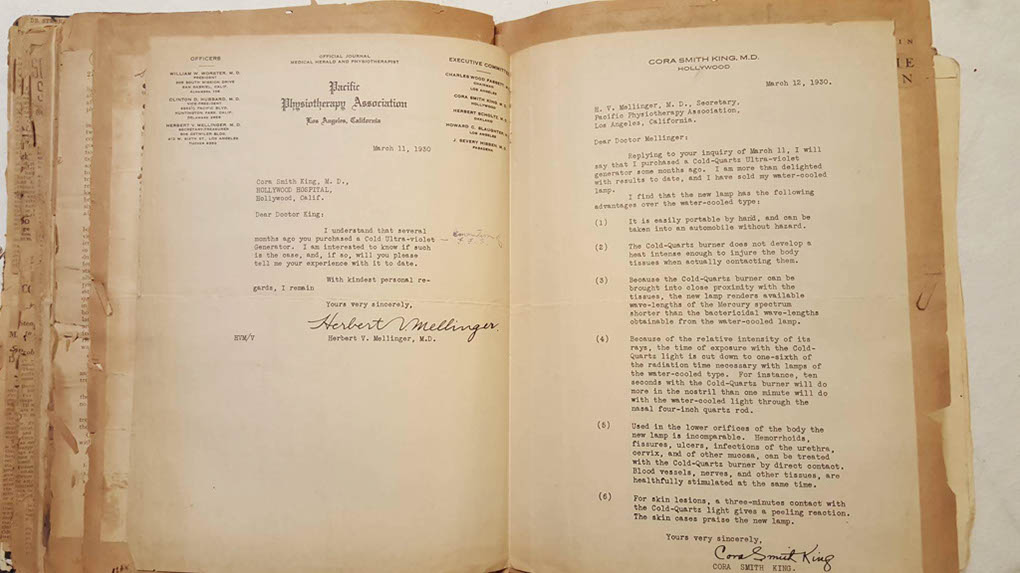 OFFICERS
WILLIAM W. WORSTER, M. D.
PRESIDENT
SAN GABRIEL, CALIF.
CLINTON D. HUBBARD, M. D.
VICE-PRESIDENT
HUNTINGTON PARK, CALIF.
HERBERT V. MELLINGER, M. D.
SECRETARY-TREASURER
LOS ANGELES
OFFICIAL JOURNAL
MEDICAL HERALD AND PHYSIOTHERAPIST
Pacific
Physiotherapy Association
Los Angeles, California
EXECUTIVE COMMITTEE
CHARLES WOOD
CHAIRMAN
HOLLYWOOD
CORA SMITH KING, M. D.
HOLLYWOOD
HERBERT
OAKLAND
HOWARD C. SLAUGHTER
LOS ANGELES
J. SEVERY HIBBEN, M. D.
PASADENA
March 11, 1930
Cora Smith King, M. D.,
HOLLYWOOD HOSPITAL,
Hollywood, Calif.
Dear Doctor King:
I understand that several
months ago you purchased a Cold Ultra-violet
Generator. I am interested to know if such
is the case, and, if so, will you please
tell me your experience with it to date.
With kindest personal re-
gards, I remain
Yours very sincerely,
Herbert V Mellinger
HVM/V
Herbert V. Mellinger, M.D.
CORA SMITH KING, M.D.
HOLLYWOOD
March 12, 1930.
H. V. Mellinger, M. D., Secretary,
Pacific Physiotherapy Association,
Los Angeles, California.
Dear Doctor Mellinger:
Replying to your inquiry of March 11, I will
say that I purchased a Cold-Quartz Ultra-violet
generator some months ago. I am more than delighted
with results to date, and I have sold my water-cooled
lamp.
I find that the new lamp has the following
advantages over the water-cooled type:
(1) It is easily portable by hand, and can be
taken into an automobile without hazard.
(2) The Cold-Quartz burner does not develop a
heat intense enough to injure the body
tissues when actually contacting them.
(3) Because the Cold-Quartz burner can be
brought into close proximity with the
tissues, the new lamp renders available
wave-lengths of the Mercury spectrum
shorter than the bactericidal wave-lengths
obtainable from the water-cooled lamp.
(4) Because of the relative intensity of its
rays, the time of exposure with the Cold-
Quartz light is cut down to one-sixth of
the radiation time necessary with lamps of
the water-cooled type. For instance, ten
seconds with the Cold-Quartz burner will do
more in the nostril than one minute will do
with the water-cooled light through the
nasal four-inch quartz rod.
(5) Used in the lower orifices of the body the
new lamp is incomparable. Hemorrhoids,
fissures, ulcers, infections of the urethra,
cervix, and of other mucosa, can be treated
with the Cold-Quartz burner by direct contact.
Blood vessels, nerves, and other tissues, are
healthfully stimulated at the same time.
(6) For skin lesions, a three-minutes contact with
the Cold-Quartz light gives a peeling reaction.
The skin cases praise the new lamp.
Yours very sincerely,
Cora Smith King
CORA SMITH KING.